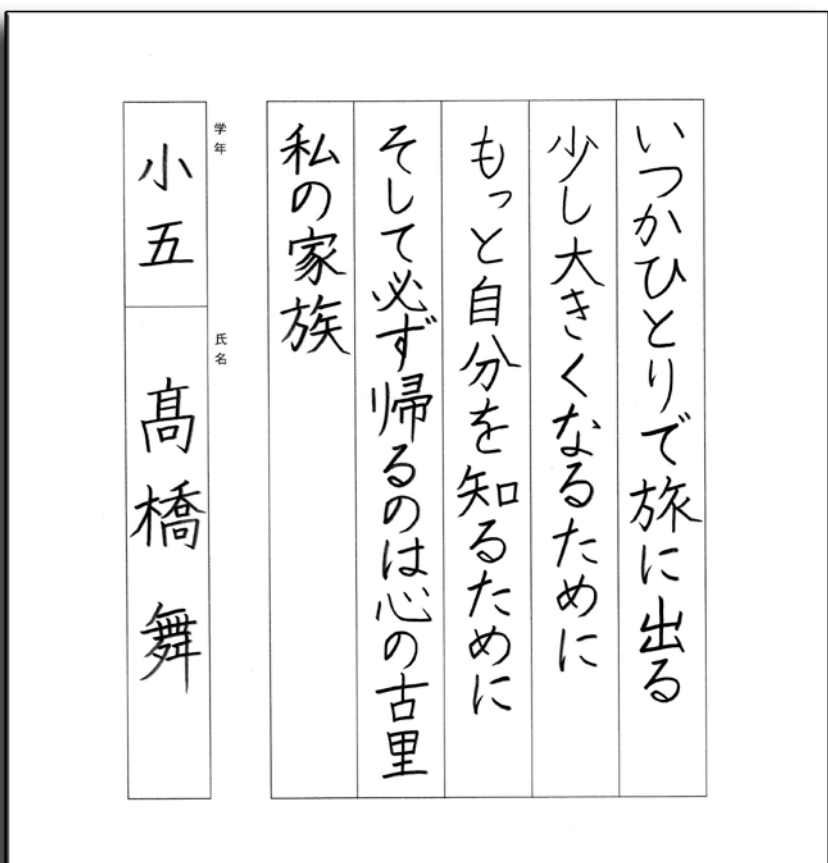 いつかひとりで旅に出る
少し大きくなるために
もっと自分を知るために
そして必ず帰るのは心の古里
私の家族
学年
小五
氏名
髙橋舞